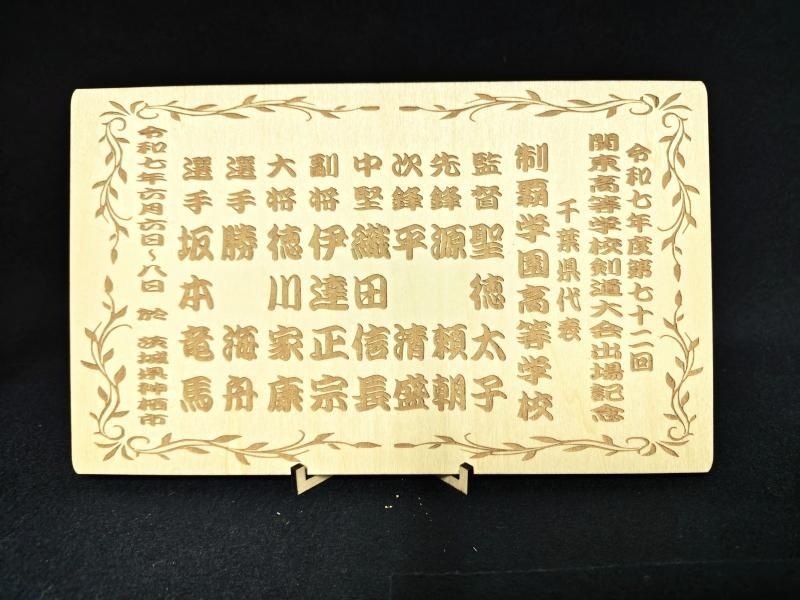 令和七年度第七十二回
関東高等学校剣道大会出場記念
千葉県代表
制覇学園高等学校
監督 聖徳太子
先鋒 源 頼朝
次鋒 平 清盛
中堅 織田信長
副将 伊達正宗
大将 徳川家康
選手 勝 海舟
選手 坂本竜馬
令和七年六月六日~八日 於 茨城県神栖市